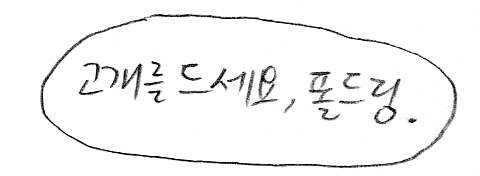 고개를 드세요, 폴드링.